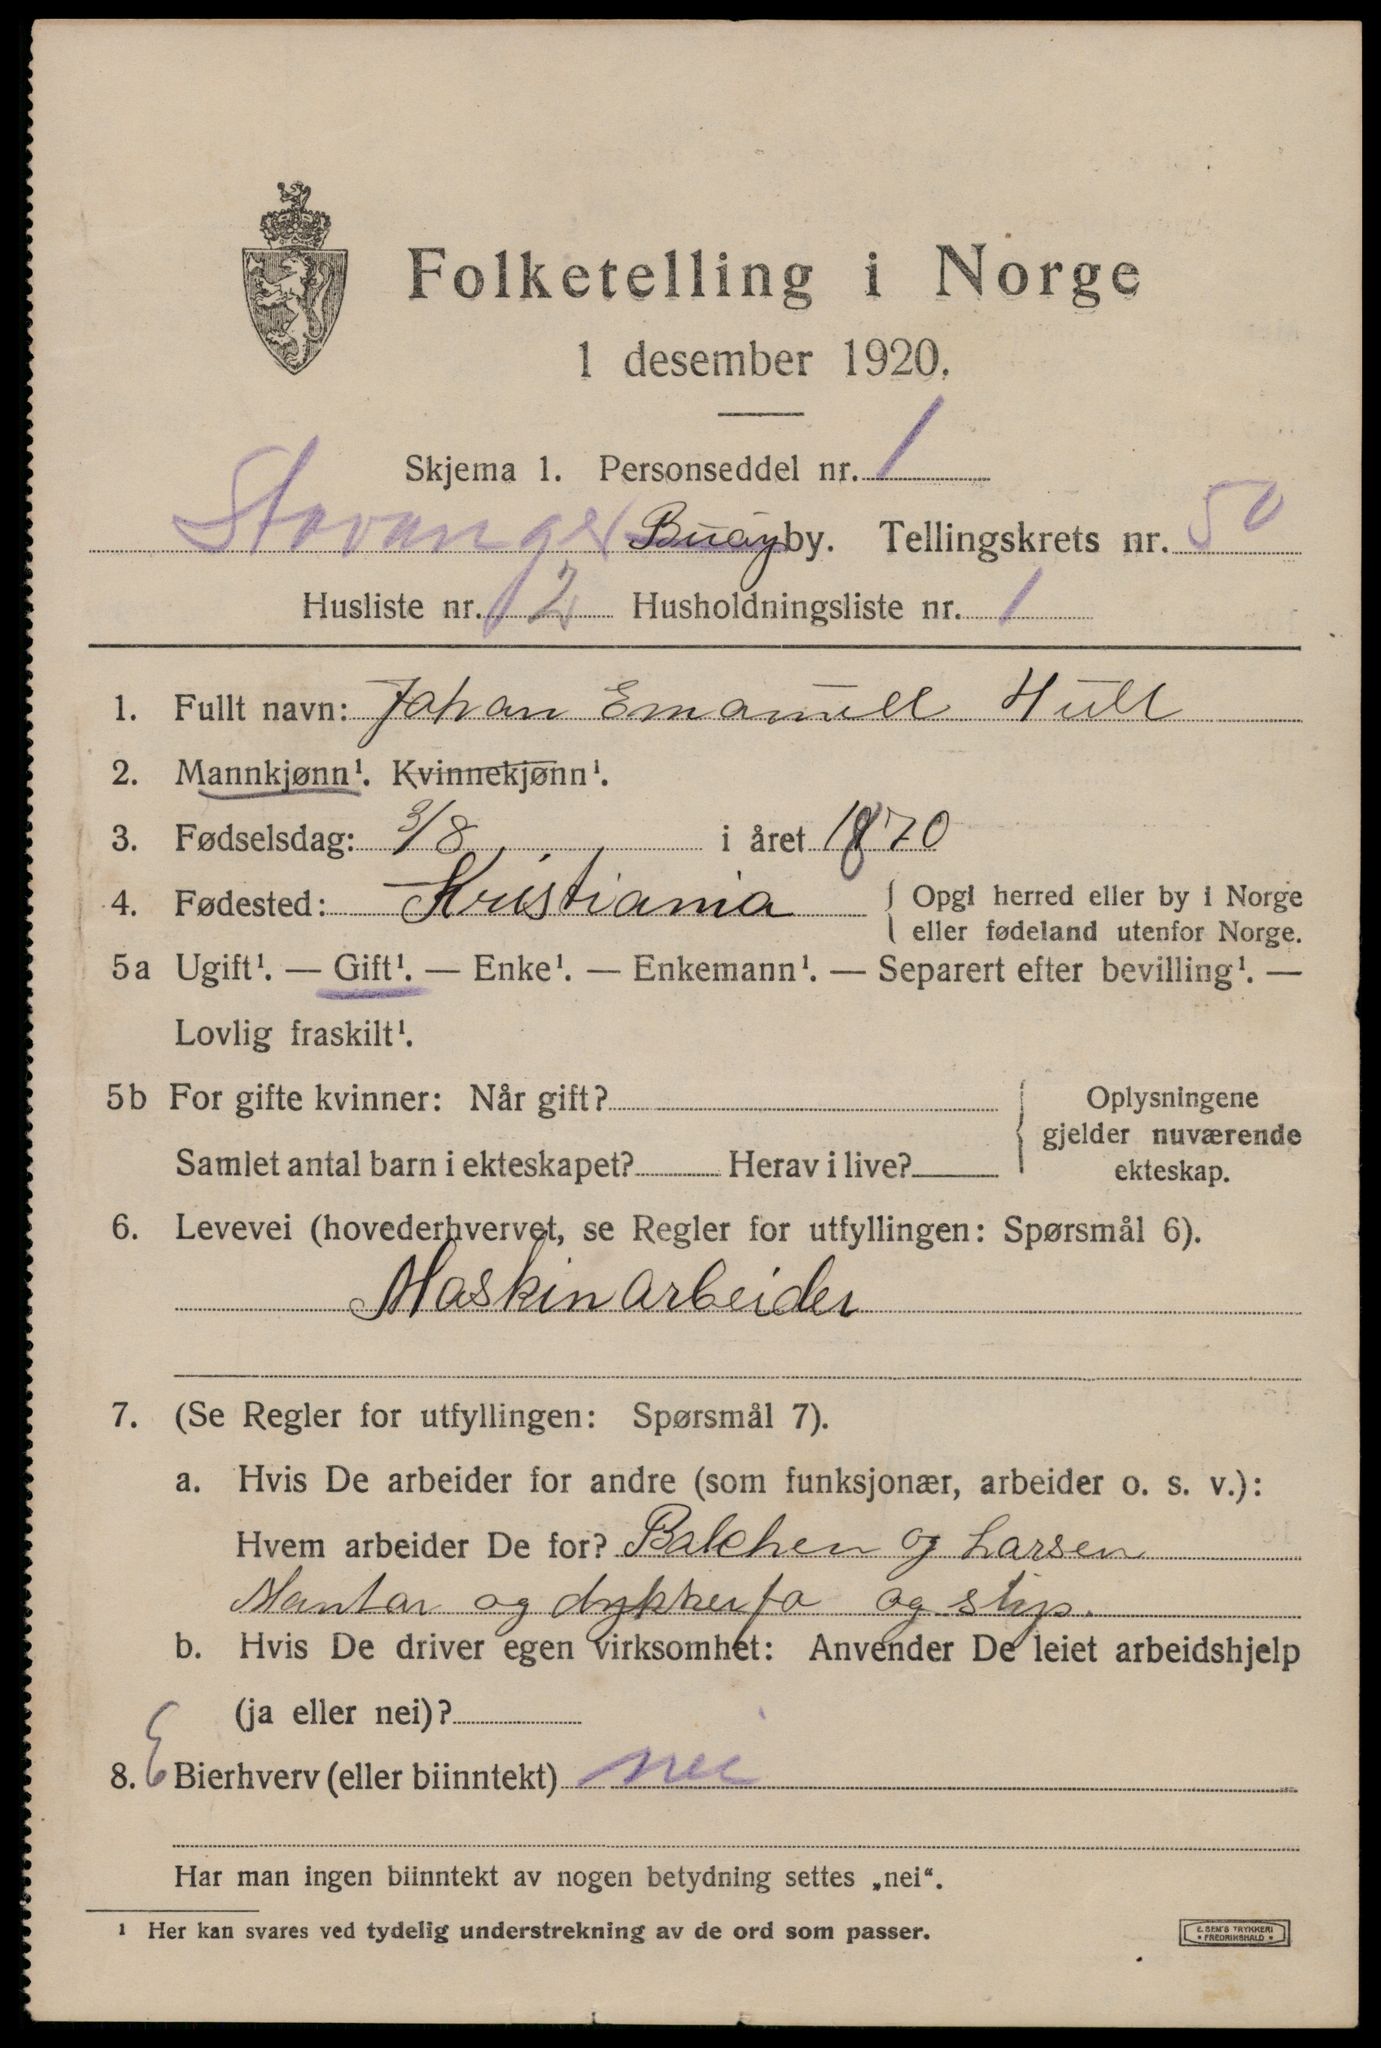 Folketelling i Norge
1 desember 1920.
Skjema 1. Personseddel nr. 1
Stavanger Buøy by. Tellingskrets nr. 50
Husliste nr. 12 Husholdningsliste nr. 1
1. Fullt navn: Johan Emanuell Hull
2. Mannkjønn¹. Kvinnekjønn¹.
3. Fødselsdag: 3/8 i året 1870
4. Fødested: Kristiania { Opgi herred eller by i Norge
eller fødeland utenfor Norge.
5a Ugift¹. — Gift¹. — Enke¹. — Enkemann¹. — Separert efter bevilling¹. —
Lovlig fraskilt¹.
5b For gifte kvinner: Når gift? { Oplysningene
gjelder nuværende
Samlet antal barn i ekteskapet? Herav i live? ekteskap.
6. Levevei (hovederhvervet, se Regler for utfyllingen: Spørsmål 6).
Maskinarbeider
7. (Se Regler for utfyllingen: Spørsmål 7).
a. Hvis De arbeider for andre (som funksjonær, arbeider o. s. v.):
Hvem arbeider De for? Balchen og Larsen
og dykkerfo og
b. Hvis De driver egen virksomhet: Anvender De leiet arbeidshjelp
(ja eller nei)?
8. Bierhverv (eller biinntekt) nei
Har man ingen biinntekt av nogen betydning settes „nei“.
¹ Her kan svares ved tydelig understrekning av de ord som passer.
E. SEM'S TRYKKERI
• FREDRIKSHALD •